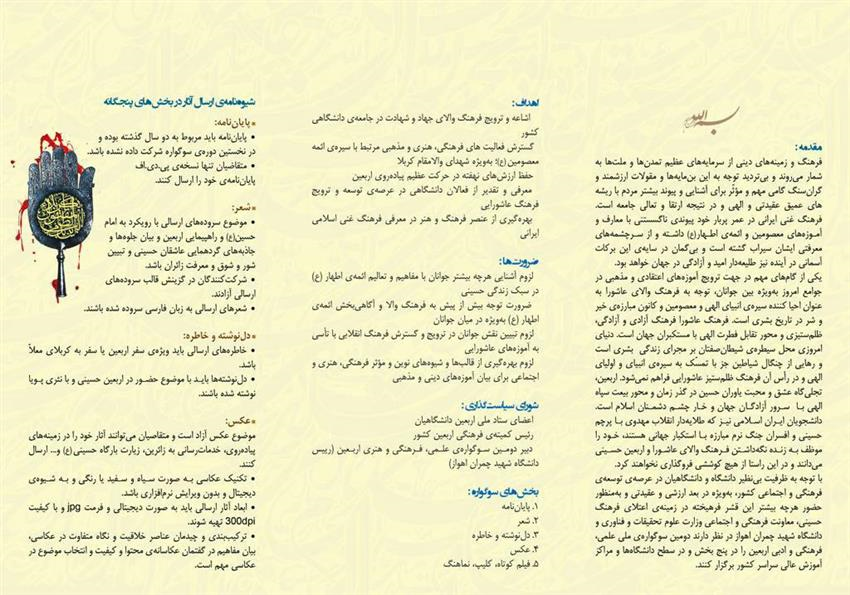 بسم الله
مقدمه:
فرهنگ و زمینه‌های دینی از سرمایه‌های عظیم تمدن‌ها و ملت‌ها به
شمار می‌روند و بی‌تردید توجه به این بن‌مایه‌ها و مقولات ارزشمند و
گران‌سنگ گامی مهم و مؤثر برای آشنایی و پیوند بیشتر مردم با ریشه
های عمیق عقیدتی و الهی و در نتیجه ارتقا و تعالی جامعه است.
فرهنگ غنی ایرانی در عمر پربار خود پیوندی ناگسستنی با معارف و
آموزه‌های معصومین و ائمه‌ی اطهار(ع) داشته و از سرچشمه‌های
معرفتی ایشان سیراب گشته است و بی‌گمان در سایه‌ی این برکات
آسمانی در آینده نیز طلیعه‌دار امید و آزادگی در جهان خواهد بود.
یکی از گام‌های مهم در جهت ترویج آموزه‌های اعتقادی و مذهبی در
جوامع امروز به‌ویژه بین جوانان، توجه به فرهنگ والای عاشورا به
عنوان احیا کننده سیره‌ی انبیای الهی و معصومین و کانون مبارزه‌ی خیر
و شر در تاریخ بشری است. فرهنگ عاشورا فرهنگ آزادی و آزادگی،
ظلم‌ستیزی و محور تقابل فطرت الهی با مستکبران جهان است. دنیای
امروزی محل سیطره‌ی شیطان‌صفتان بر مجرای زندگی بشری است
و رهایی از چنگال شیاطین جز با تمسک به سیره‌ی انبیای و اولیای
الهی و در رأس آن فرهنگ ظلم‌ستیز عاشورایی فراهم نمی‌شود. اربعین،
تجلی‌گاه عشق و محبت یاوران حسین در گذر زمان و محور بیعت سپاه
الهی با سرور آزادگان جهان و خار چشم دشمنان اسلام است.
دانشجویان ایران اسلامی نیز که طلایه‌دار انقلاب مهدوی با پرچم
حسینی و افسران جنگ نرم مبارزه با استکبار جهانی هستند، خود را
موظف به زنده نگه‌داشتن فرهنگ والای عاشورا و اربعین حسینی
می‌دانند و در این راستا از هیچ کوششی فروگذاری نخواهند کرد.
با توجه به ظرفیت بی‌نظیر دانشگاه و دانشگاهیان در عرصه‌ی توسعه‌ی
فرهنگی و اجتماعی کشور، به‌ویژه در بعد ارزشی و عقیدتی و به‌منظور
حضور هرچه بیشتر این قشر فرهیخته در زمینه‌ی اعتلای فرهنگ
حسینی، معاونت فرهنگی و اجتماعی وزارت علوم تحقیقات و فناوری و
دانشگاه شهید چمران اهواز در نظر دارند دومین سوگواره‌ی ملی علمی،
فرهنگی و ادبی اربعین را در پنج بخش و در سطح دانشگاه‌ها و مراکز
آموزش عالی سراسر کشور برگزار کنند.
اهداف:
اشاعه و ترویج فرهنگ والای جهاد و شهادت در جامعه‌ی دانشگاهی
کشور
گسترش فعالیت های فرهنگی، هنری و مذهبی مرتبط با سیره‌ی ائمه
معصومین(ع)؛ به‌ویژه شهدای والامقام کربلا
حفظ ارزش‌های نهفته در حرکت عظیم پیاده‌روی اربعین
معرفی و تقدیر از فعالان دانشگاهی در عرصه‌ی توسعه و ترویج
فرهنگ عاشورایی
بهره‌گیری از عنصر فرهنگ و هنر در معرفی فرهنگ غنی اسلامی
ایرانی
ضرورت‌ها:
لزوم آشنایی هرچه بیشتر جوانان با مفاهیم و تعالیم ائمه‌ی اطهار (ع)
در سبک زندگی حسینی
ضرورت توجه بیش از پیش به فرهنگ والا و آگاهی‌بخش ائمه‌ی
اطهار (ع) به‌ویژه در میان جوانان
لزوم تبیین نقش جوانان در ترویج و گسترش فرهنگ انقلابی با تأسی
به آموزه‌های عاشورایی
لزوم بهره‌گیری از قالب‌ها و شیوه‌های نوین و مؤثر فرهنگی، هنری و
اجتماعی برای بیان آموزه‌های دینی و مذهبی
شورای سیاست‌گذاری:
اعضای ستاد ملی اربعین دانشگاهیان
رئیس کمیته‌ی فرهنگی اربعین کشور
دبیر دومین سوگواره‌ی علمی، فرهنگی و هنری اربعین (رییس
دانشگاه شهید چمران اهواز)
بخش‌های سوگواره:
۱. پایان‌نامه
۲. شعر
۳. دل‌نوشته و خاطره
۴. عکس
۵. فیلم کوتاه، کلیپ، نماهنگ
شیوه‌نامه‌ی ارسال آثار در بخش‌های پنجگانه
* پایان‌نامه:
• پایان‌نامه باید مربوط به دو سال گذشته بوده و
در نخستین دوره‌ی سوگواره شرکت داده نشده باشد.
• متقاضیان تنها نسخه‌ی پی.دی.اف
پایان‌نامه‌ی خود را ارسال کنند.
* شعر:
• موضوع سروده‌های ارسالی با رویکرد به امام
حسین(ع) و راهپیمایی اربعین و بیان جلوه‌ها و
جاذبه‌های گردهمایی عاشقان حسینی و تبیین
شور و شوق و معرفت زائران باشد.
• شرکت‌کنندگان در گزینش قالب سروده‌های
ارسالی آزادند.
• شعرهای ارسالی به زبان فارسی سروده شده باشند.
* دل‌نوشته و خاطره:
• خاطره‌های ارسالی باید ویژه‌ی سفر اربعین یا سفر به کربلای معلاً
باشد.
• دل‌نوشته‌ها باید با موضوع حضور در اربعین حسینی و با نثری پویا
نوشته شده باشند.
* عکس:
موضوع عکس آزاد است و متقاضیان می‌توانند آثار خود را در زمینه‌های
پیاده‌روی، خدمات‌رسانی به زائرین، زیارت بارگاه حسینی (ع) و... ارسال
کنند.
• تکنیک عکاسی به صورت سیاه و سفید یا رنگی و به شیوه‌ی
دیجیتال و بدون ویرایش نرم‌افزاری باشد.
• ابعاد آثار ارسالی باید به صورت دیجیتالی و فرمت jpg و با کیفیت
300dpi تهیه شوند.
• ترکیب‌بندی و چیدمان عناصر خلاقیت و نگاه متفاوت در عکاسی،
بیان مفاهیم در گفتمان عکاسانه‌ی محتوا و کیفیت و انتخاب موضوع در
عکاسی مهم است.